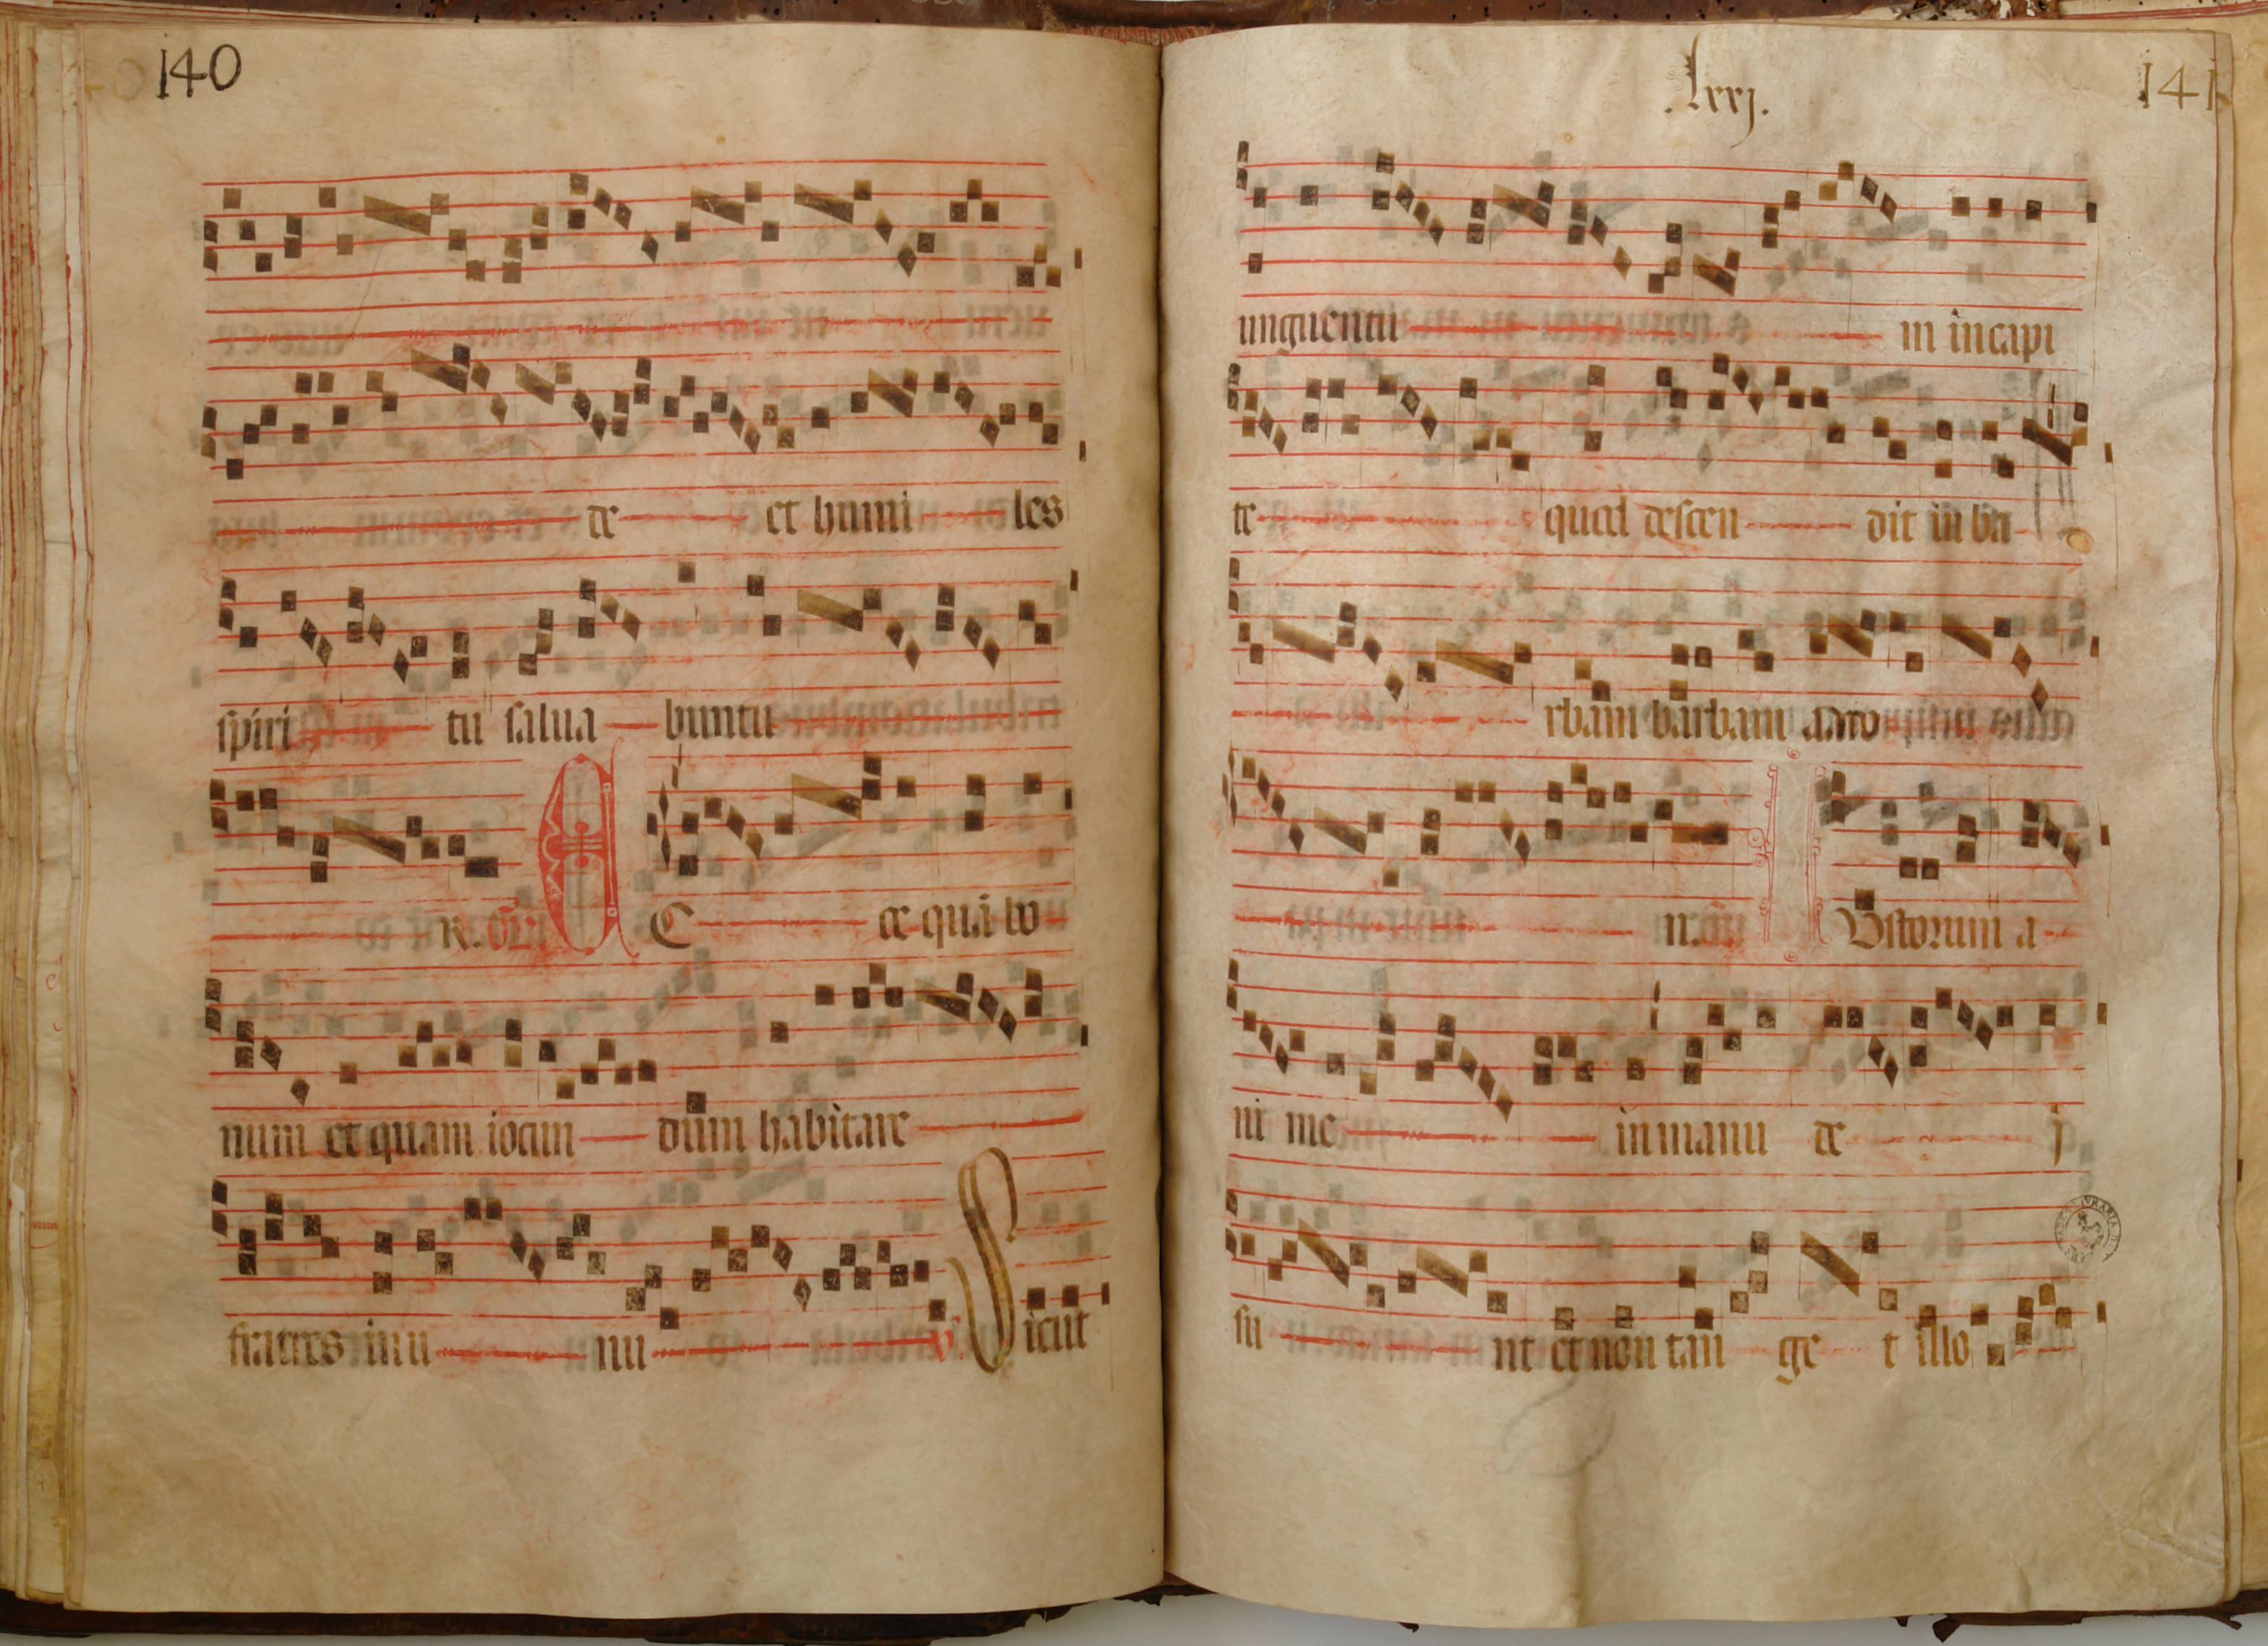 140
de et humi les
spiri tu salua buntu
R. Gr̄. E C ce quā bo
num et quam iocun dum habitare
fratres inu nu v. Sicut
.lxxj.
141
unguentū m in capi
te quod descen dit in ba
rbam barbam aaro
n. I Ustorum a
ni me in manu de j
su nt et non tan ge t illo